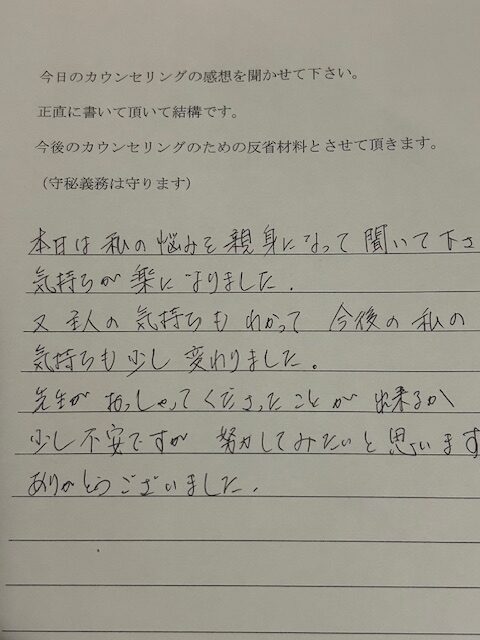 今日のカウンセリングの感想を聞かせて下さい。
正直に書いて頂いて結構です。
今後のカウンセリングのための反省材料とさせて頂きます。
（守秘義務は守ります）
本日は私の悩みを親身になって聞いて下さ
気持ちが楽になりました.
又主人の気持ちもわかって 今後の私の
気持ちも少し変わりました。
先生がおっしゃってくださったことが出来るか
少し不安ですが 努力してみたいと思います
ありがとうございました.